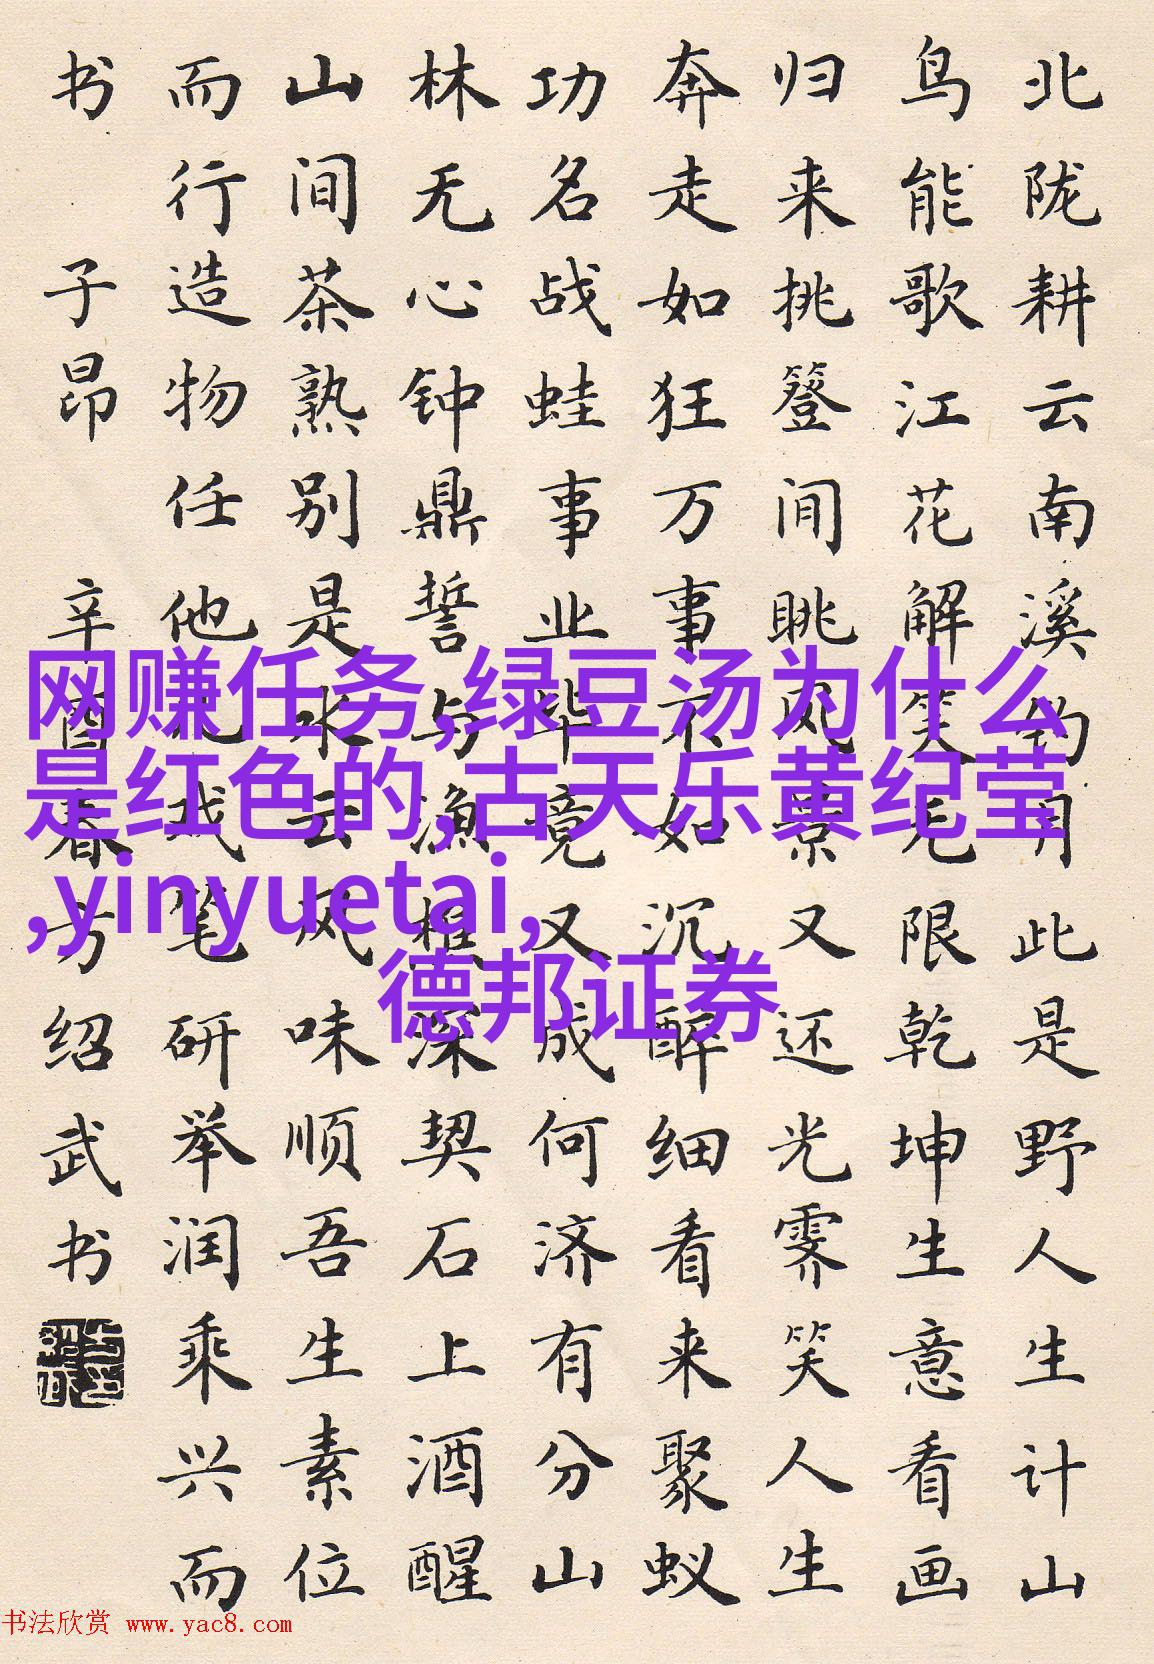 北陇耕云南溪钓月此是野人生计山
鸟能歌江花解笑无限乾坤生意看画
归来挑簦间眺风景又还光霁笑人生
奔走如狂万事不如沉醉细看来聚蚁
功名战蛙事业毕竟又成何济有分山
林无心钟鼎誓与渔樵深契石上酒醒
山间茶熟别是水云风味顺吾生素位
而行造物任他儿戏笔研举润乘兴而
书 子昂 辛酉春方绍武书
网赚任务,绿豆汤为什么
是红色的,古天乐黄纪莹
,yinyuetai,
德邦证券
书法欣赏 www.yac8.com